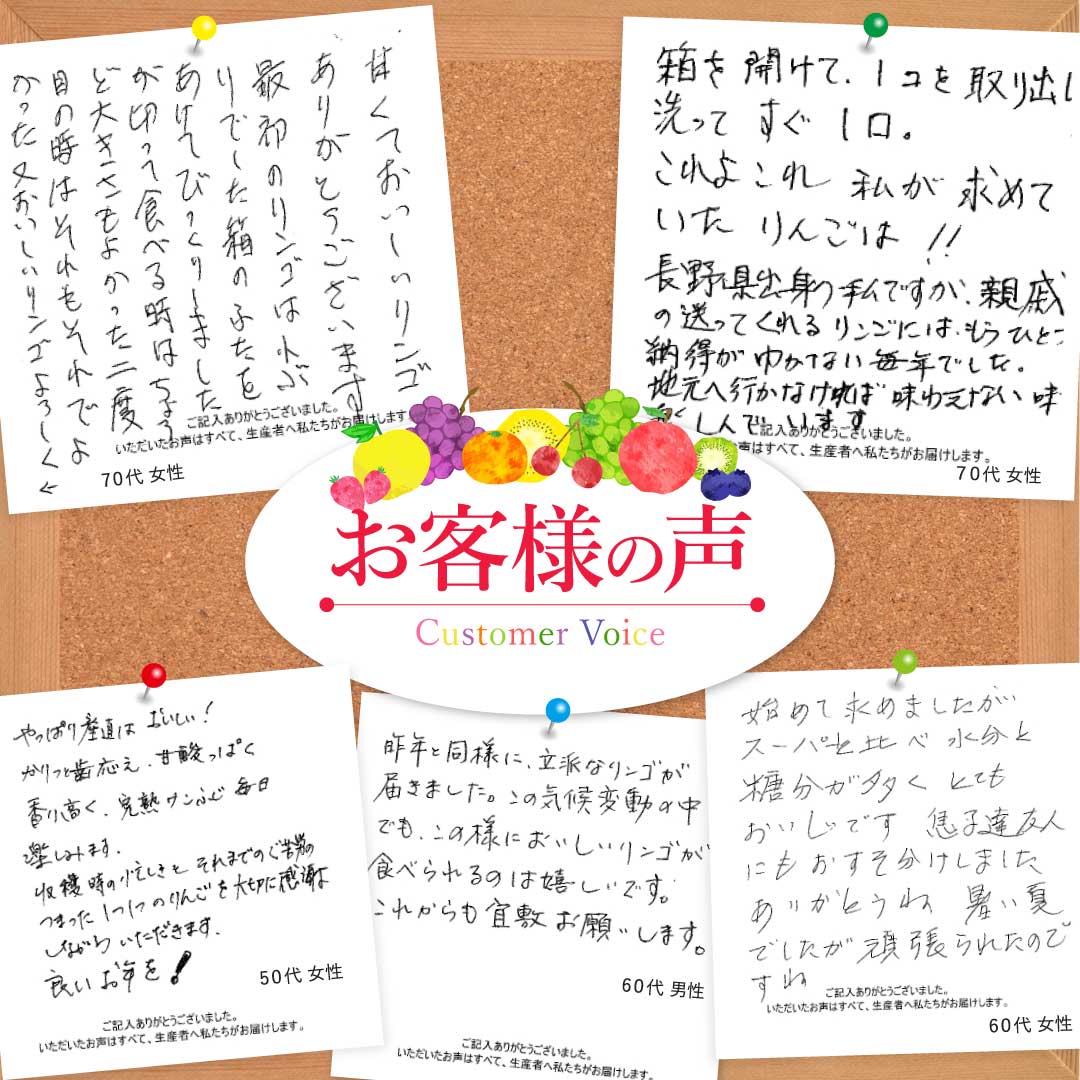 甘くておいしいリンゴ
ありがとうございます
最初のリンゴは小ぶ
りでした箱のふたを
あけてびっくりしました
が切って食べる時はちょう
ど大きさもよかった二度
目の時はそれもそれでよ
かった又おいしいリンゴよろしく
ご記入ありがとうございました。
いただいたお声はすべて、生産者へ私たちがお届けします
70代 女性
箱を開けて、1コを取り出し
洗って すぐ 1口。
これよこれ 私が求めて
いた りんごは !!
長野県出身の私ですが、親戚
の送ってくれるリンゴには、もうひとつ
納得がゆかない毎年でした。
地元へ行かなければ味わえない味
しんでいます
ご記入ありがとうございました。
お声はすべて、生産者へ私たちがお届けします。
70代 女性
お客様の声
Customer Voice
やっぱり産直は おいしい!
かりっと歯応え、甘酸っぱく
香り高く、完熟サンふじ 毎日
楽しみます.
収穫時の忙しさと それまでのご苦労の
つまった 1つ1つのりんごを大切に感謝
しながら いただきます.
良いお年を!
50代 女性
ご記入ありがとうございました。
いただいたお声はすべて、生産者へ私たちがお届けします。
昨年と同様に、立派なリンゴが
届きました。この気候変動の中
でも、この様においしいリンゴが
食べられるのは嬉しいです。
これからも宜敷お願いします。
60代 男性
ご記入ありがとうございました。
いただいたお声はすべて、生産者へ私たちがお届けします。
始めて求めましたが
スーパーと比べ 水分と
糖分が多く とても
おいしいです 息子達友人
にもおすそ分けしました
ありがとうね 暑い夏
でしたが頑張られたので
すね
ご記入ありがとうございました。
いただいたお声はすべて、生産者へ私たちがお届けします。
60代 女性